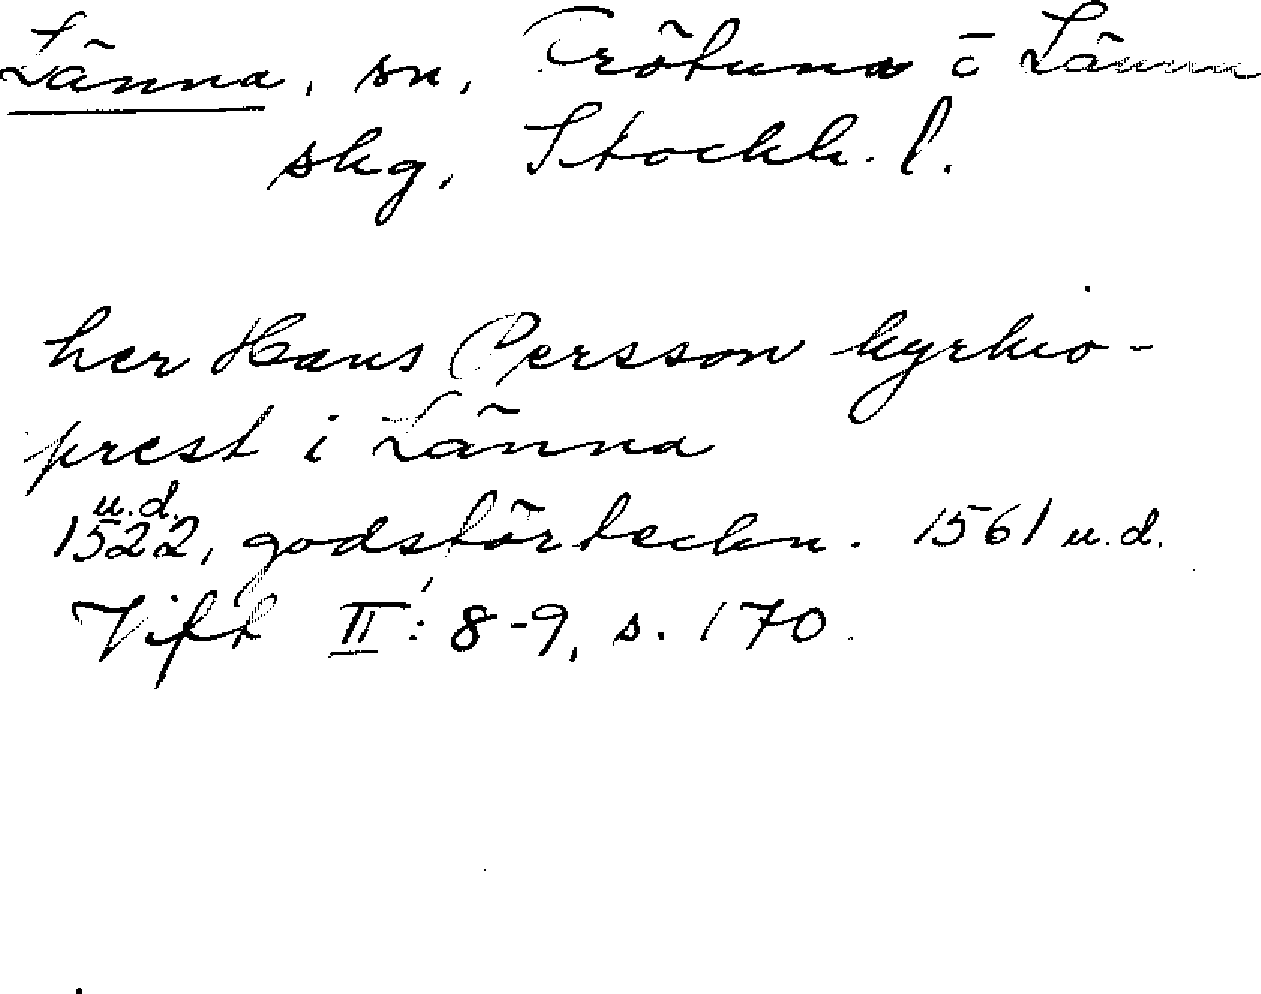 Länna, sn, Frötuna o Länna
skg, Stockh. l.
her Hans Persson kyrkio-
prest i Länna
u.d.
1522, godsförteckn. 1561 u.d.
Vift II: 8-9, s. 170.